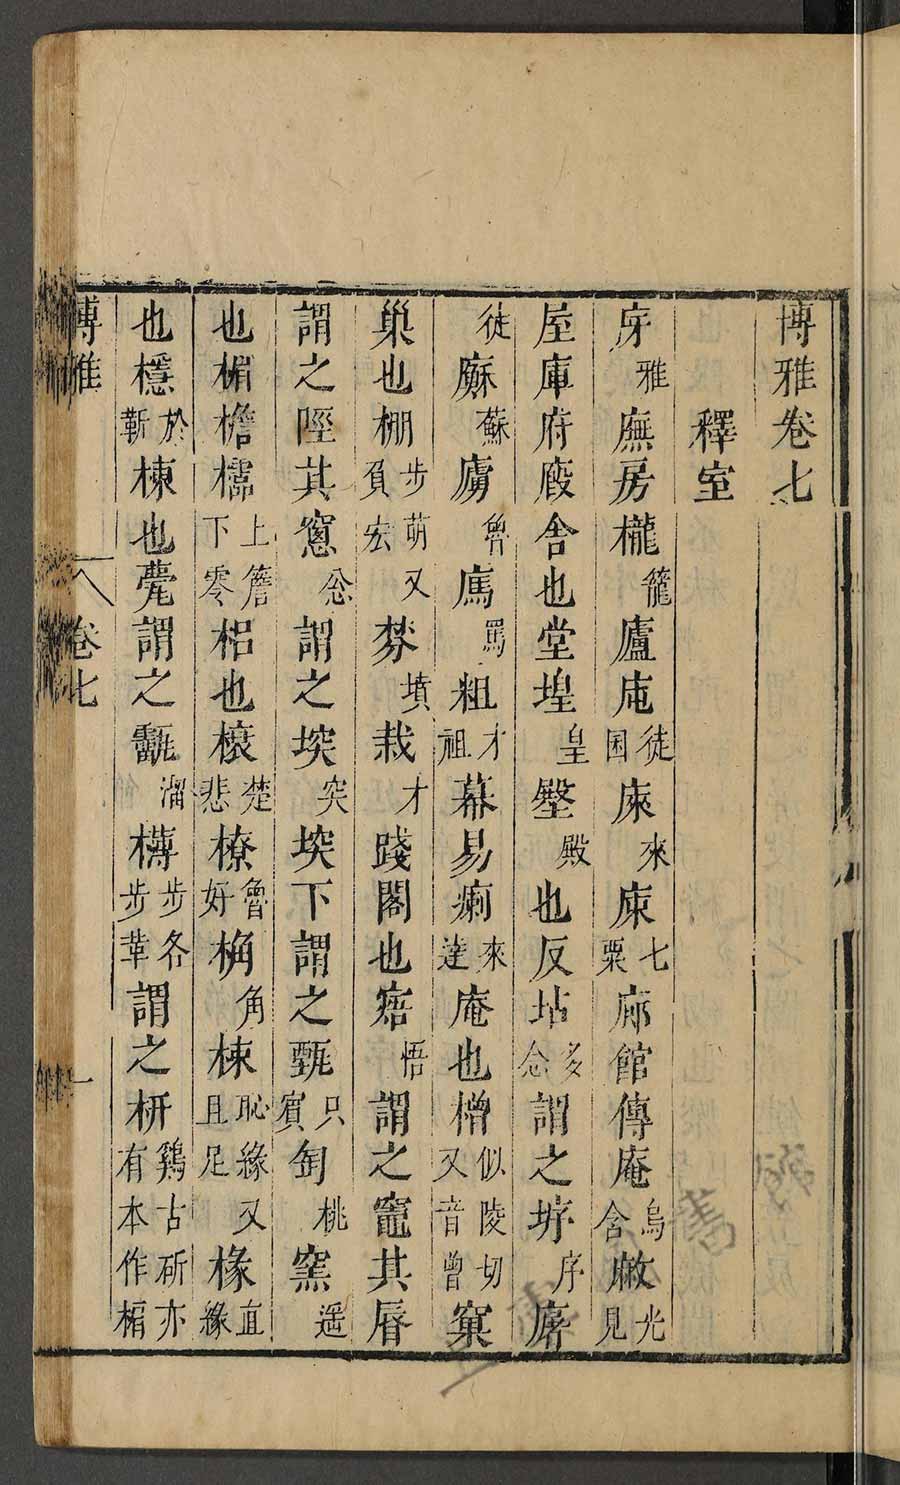 博雅卷七
釋室
庌雅廡房櫳籠廬庉徒困庲來七粟廊館傳庵烏含光見
屋庫府廄舍也堂堭皇壂殿也反坫多念謂之垿序廜
徒㢝蘇魯罵粗才祖幕易來達庵也橧似陵切又音曾窠
巢也棚步萌又負宏棼墳栽才踐閣也悟謂之竈其脣
謂之陘其窻忩謂之堗突堗下謂之甄只賓匋桃窯遥
也楣檐櫺上簷下零梠也榱楚悲橑魯好桷角恥緣又且足椽直緣
也檼於靳棟也甍謂之溜欂步各步謂之枅鷄古斫亦有本作楄
博雅 卷七 一